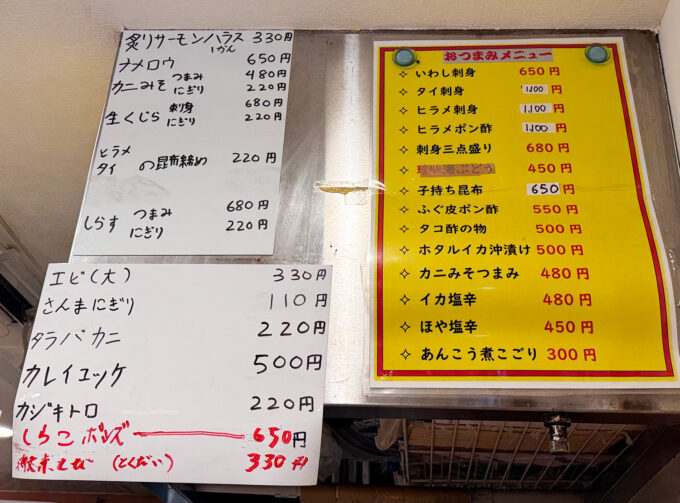 炙りサーモンハラス 330円
1かん
ナメロウ 650円
カニみそ つまみ 480円
にぎり 220円
生くじら 刺身 680円
にぎり 220円
ヒラメ
タイ の昆布締め 220円
しらす つまみ 680円
にぎり 220円
エビ(大) 330円
さんまにぎり 110円
タラバカニ 220円
カレイユッケ 500円
カジキトロ 220円
しらこポンズ 650円
(とくだい) 330円
おつまみメニュー
✧ いわし刺身 650円
✧ タイ刺身 1,100円
✧ ヒラメ刺身 1,100円
✧ ヒラメポン酢 1,100円
✧ 刺身三点盛り 680円
✧ 海ぶどう 450円
✧ 子持ち昆布 650円
✧ ふぐ皮ポン酢 550円
✧ タコ酢の物 500円
✧ ホタルイカ沖漬け 500円
✧ カニみそつまみ 480円
✧ イカ塩辛 480円
✧ ほや塩辛 450円
✧ あんこう煮こごり 300円